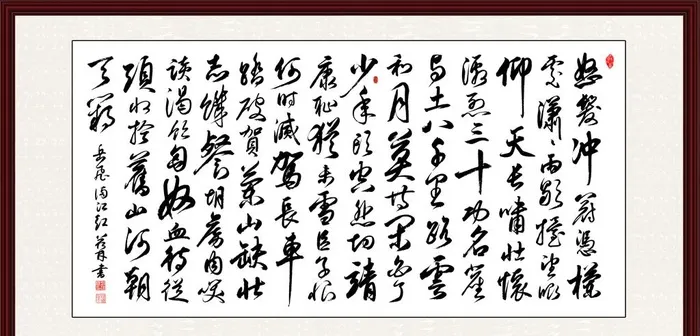 怒髮冲冠憑欄
處瀟瀟雨歇擡望眼
仰天長嘯壯懷
激烈三十功名塵
與土八千里路雲
和月莫等閑白了
少年頭空悲切靖
康恥猶未雪臣子恨
何時滅駕長車
踏破賀蘭山缺壯
志饑餐胡虜肉笑
談渴飲匈奴血待從
頭收拾舊山河朝
天闕
岳飛滿江紅 書